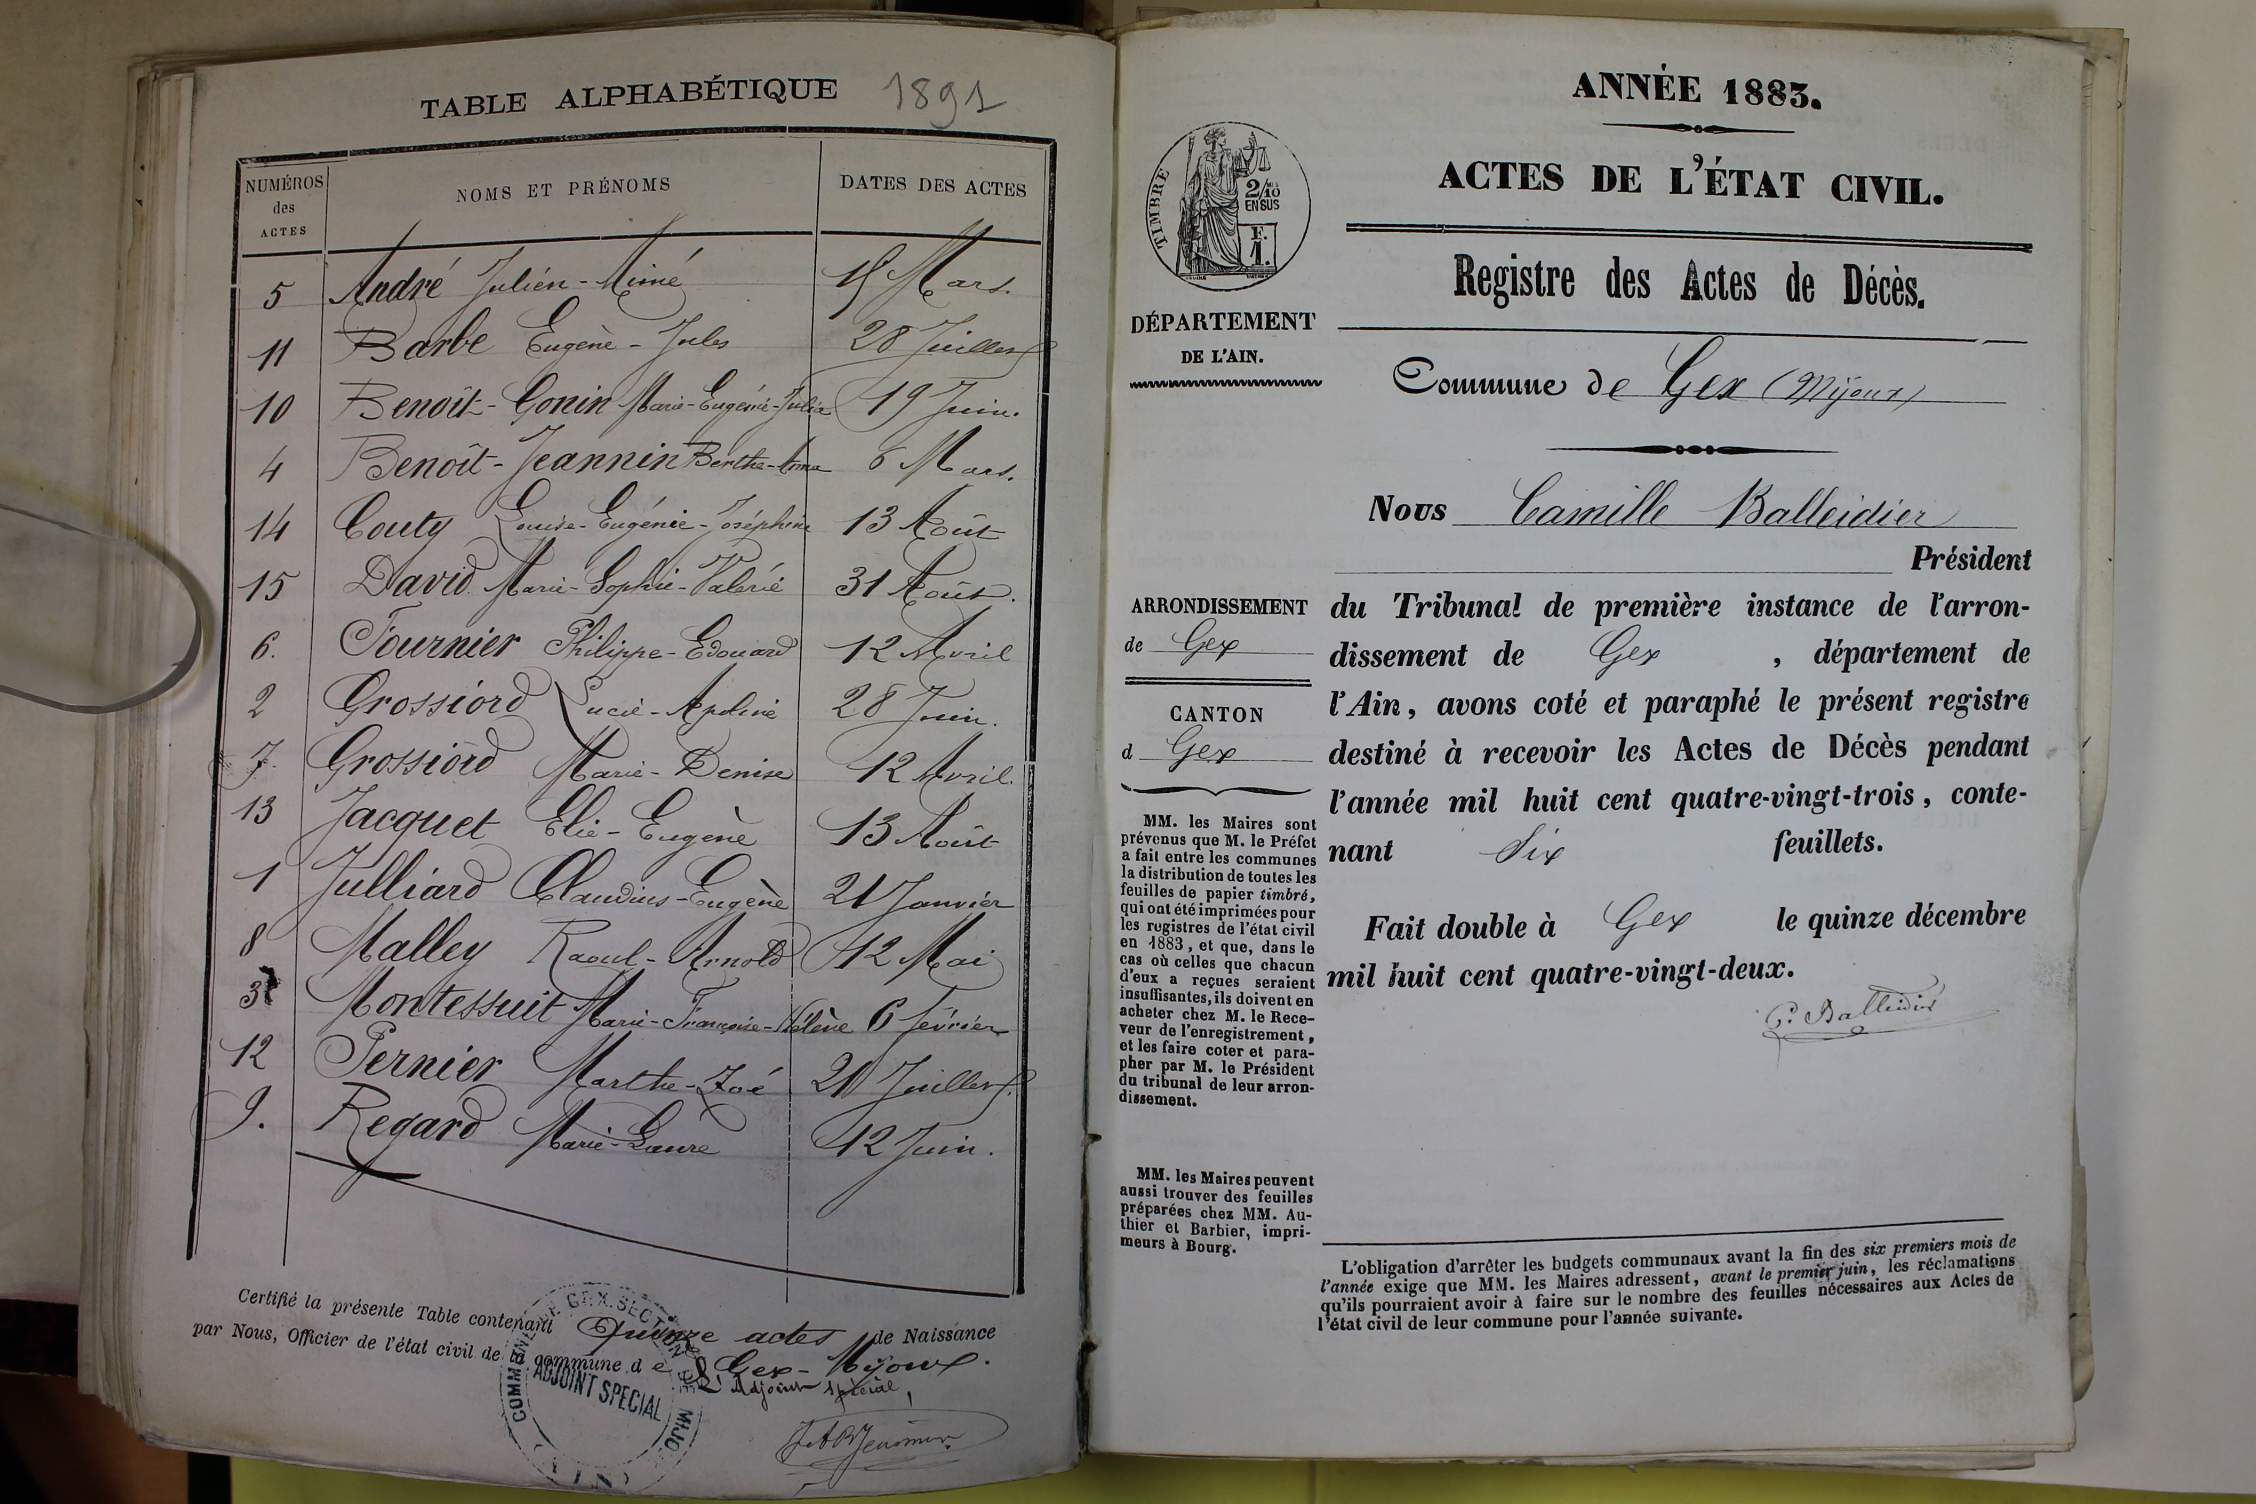 TABLE ALPHABÉTIQUE 1891
NUMÉROS des ACTES NOMS ET PRÉNOMS DATES DES ACTES
5 André Julien-Aimé 15 Mars.
11 Barbe Eugène-Jules 28 Juillet
10 Benoît-Gonin Marie-Eugénie-Julia 19 Juin.
4 Benoît-Jeannin Berthe-Anna 6 Mars.
14 Couty Louise-Eugénie-Joséphine 13 Août
15 David Marie-Sophie-Valérie 31 Août.
6. Fournier Philippe-Edouard 12 Avril
2 Grossiord Lucie-Apoline 28 Juin.
7. Grossiord Marie-Denise 12 Avril.
13 Jacquet Elie-Eugène 13 Août
1 Julliard Claudius-Eugène 21 Janvier
8 Malley Raoul-Arnold 12 Mai
3 Montessuit Marie-Françoise-Hélène 6 février
12 Pernier Marthe-Zoé Juillet.
9. Regard Marie-Laure 12 Juin.
Certifié la présente Table contenant Quinze actes de Naissance
par Nous, Officier de l'état civil de la commune de Gex-Mijoux.
L'Adjoint spécial,
COMMUNE DE GEX. SECTION DE MIJOUX
ADJOINT SPECIAL
AIN
ANNÉE 1883.
ACTES DE L'ÉTAT CIVIL.
Registre des Actes de Décès.
TIMBRE
2/10
EN SUS
F.
1.
DÉPARTEMENT
DE L'AIN.
Commune de Gex (Mijoux)
Nous Camille Balleidier
Président
du Tribunal de première instance de l'arron-
dissement de Gex, département de
l'Ain, avons coté et paraphé le présent registre
destiné à recevoir les Actes de Décès pendant
l'année mil huit cent quatre-vingt-trois, conte-
nant Six feuillets.
Fait double à Gex le quinze décembre
mil huit cent quatre-vingt-deux.
C. Balleidier
ARRONDISSEMENT
de Gex
CANTON
d Gex
MM. les Maires sont
prévenus que M. le Préfet
a fait entre les communes
la distribution de toutes les
feuilles de papier timbré,
qui ont été imprimées pour
les registres de l'état civil
en 1883, et que, dans le
cas où celles que chacun
d'eux a reçues seraient
insuffisantes, ils doivent en
acheter chez M. le Rece-
veur de l'enregistrement,
et les faire coter et para-
pher par M. le Président
du tribunal de leur arron-
dissement.
MM. les Maires peuvent
aussi trouver des feuilles
préparées chez MM. Au-
thier et Barbier, impri-
meurs à Bourg.
L'obligation d'arrêter les budgets communaux avant la fin des six premiers mois de
l'année exige que MM. les Maires adressent, avant le premier juin, les réclamations
qu'ils pourraient avoir à faire sur le nombre des feuilles nécessaires aux Actes de
l'état civil de leur commune pour l'année suivante.